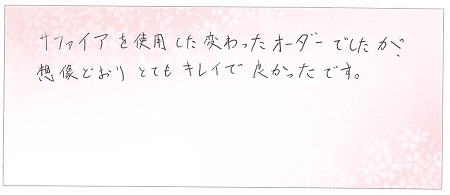 サファイアを使用した変わったオーダーでしたが、
想像どおりとてもキレイで良かったです。